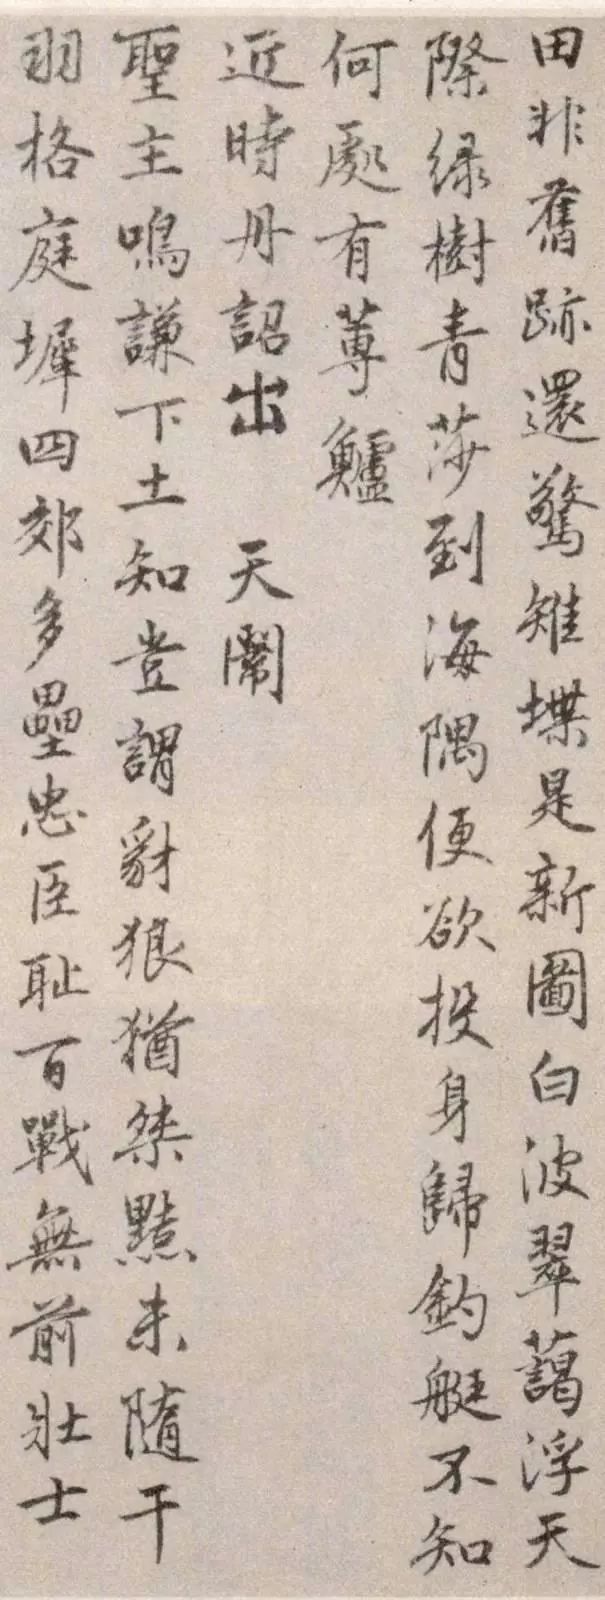 田非舊跡還驚雉堞是新圖白波翠藹浮天
際緑樹青莎到海隅便欲投身歸釣艇不知
何處有蓴鱸
近時丹詔出　天閽
聖主鳴謙下土知豈謂豺狼猶桀黠未隨干
羽格庭墀四郊多壘忠臣耻百戰無前壯士